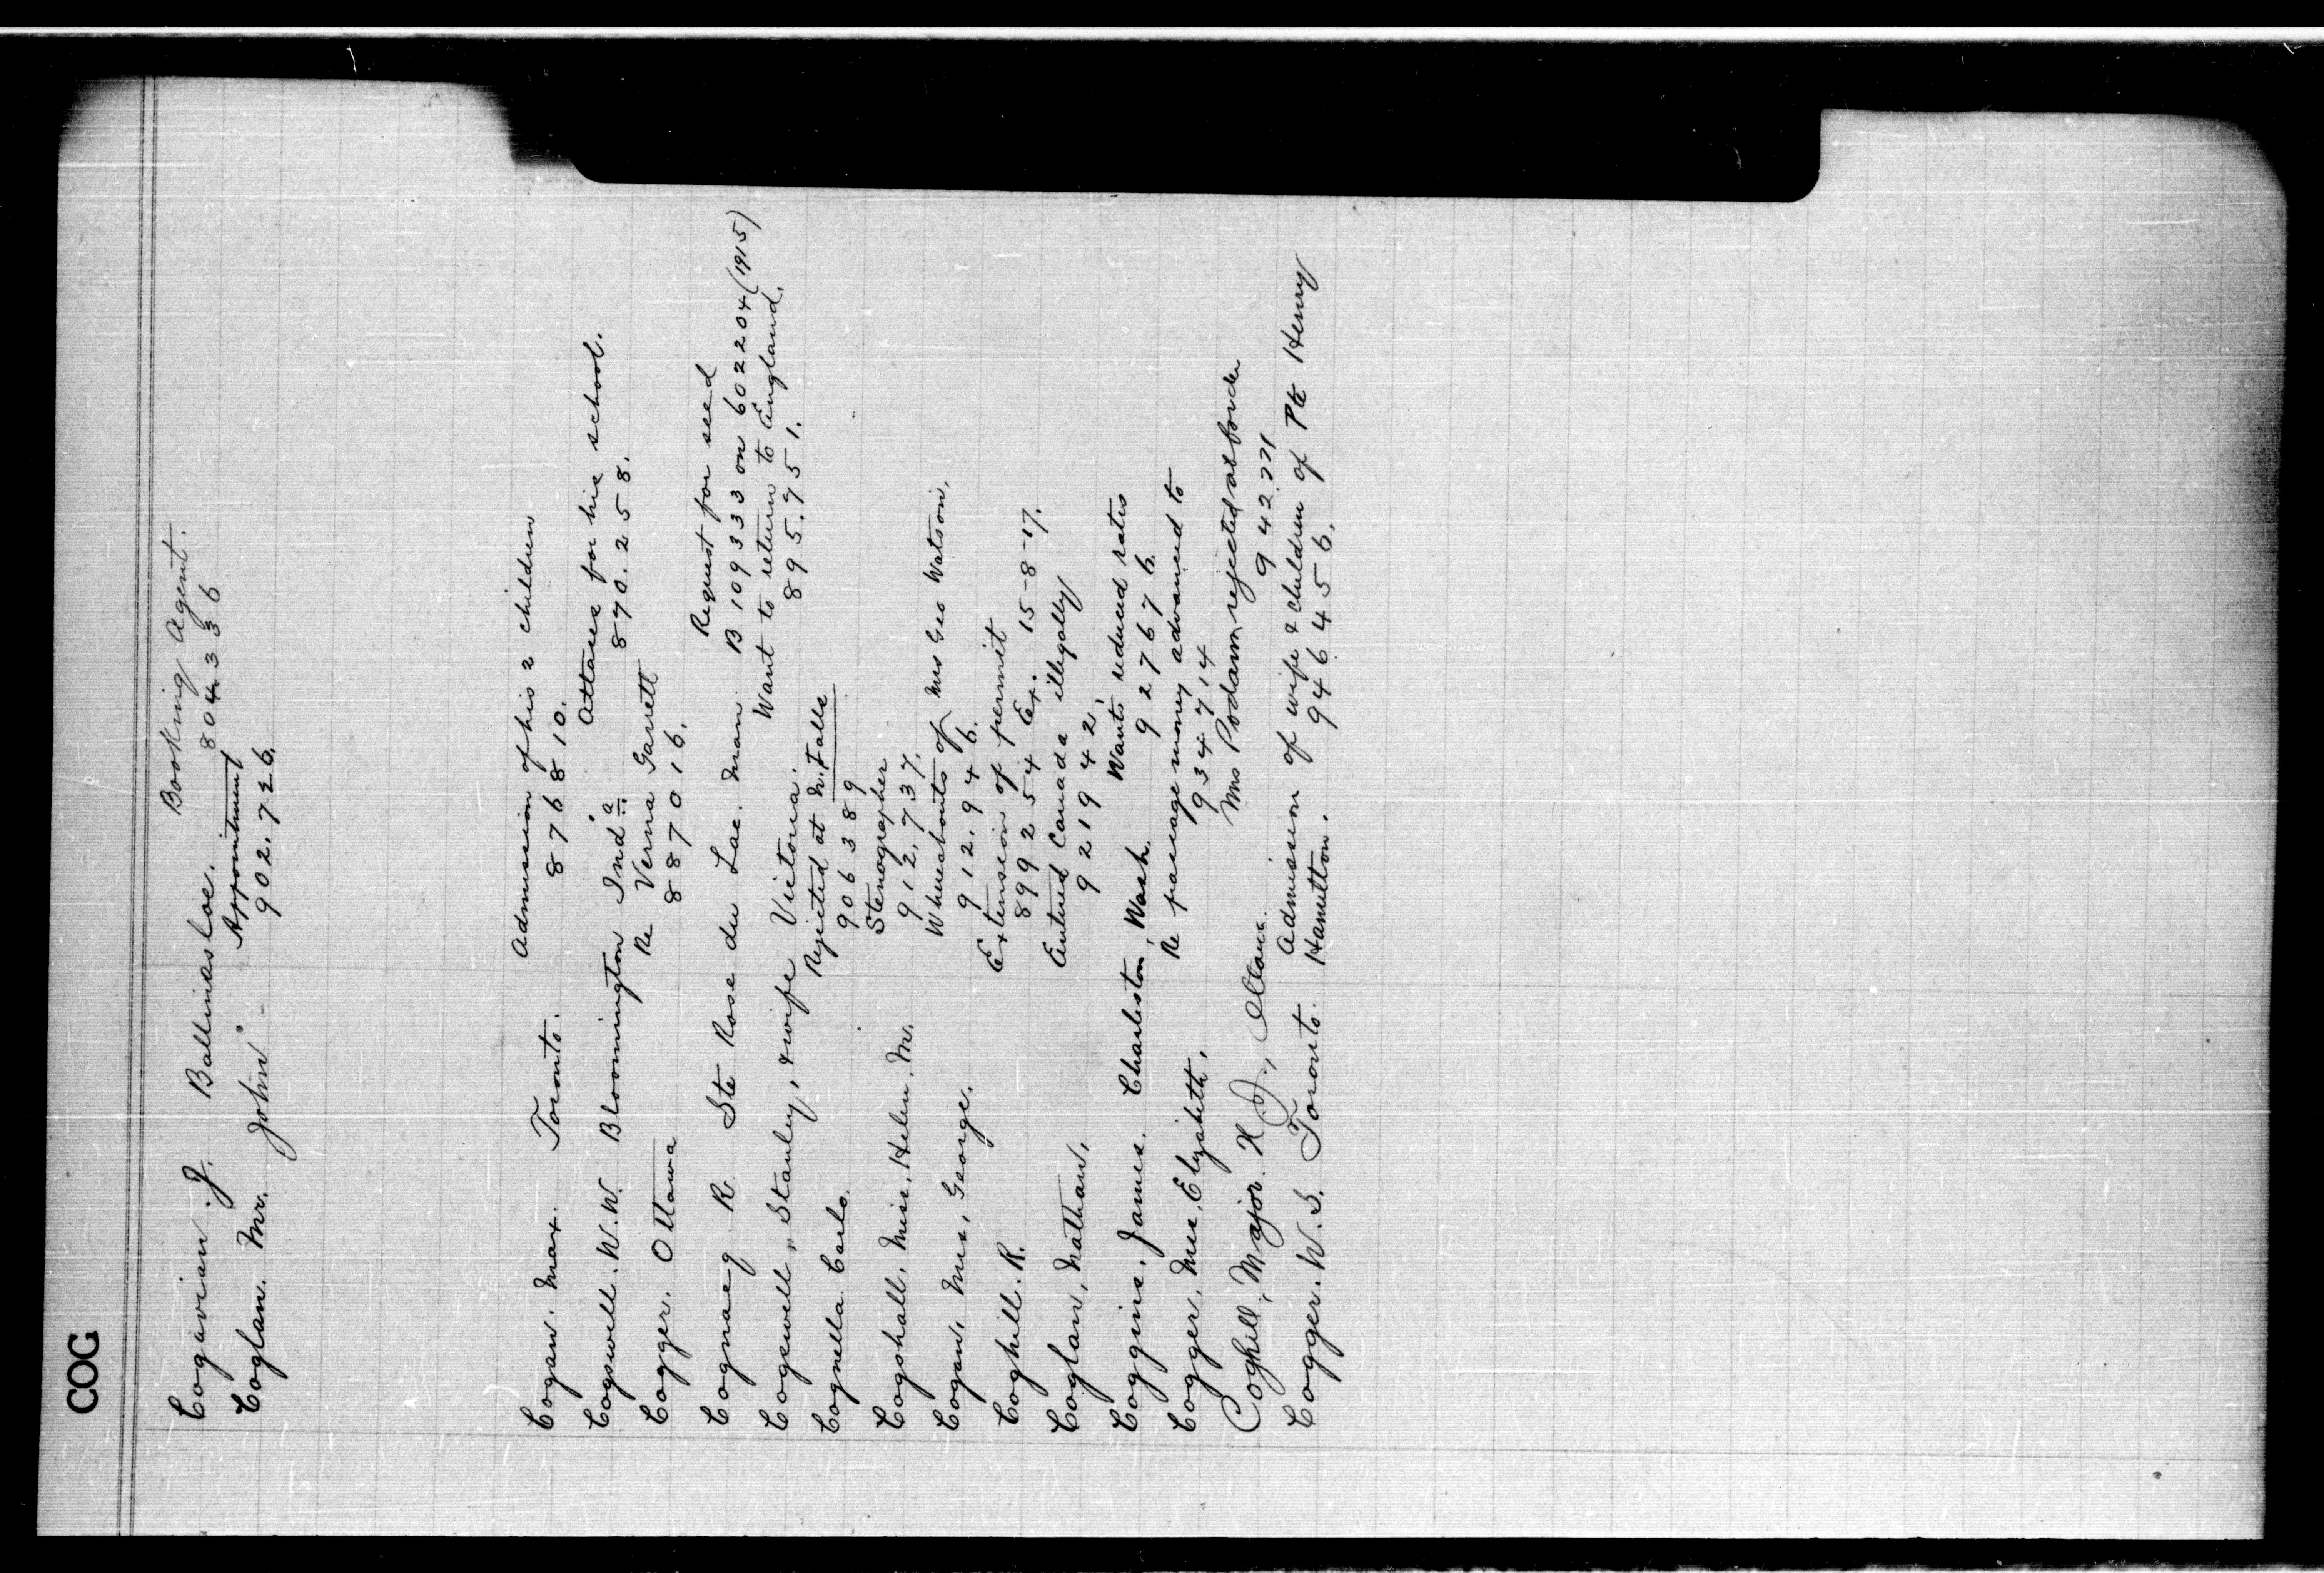 COG
Cogavian J. Ballinasloe. Booking Agent.
804336
Coglan. Mr. John Appointment
902.726.
Cogan. Max. Toronto. Admission of his 2 children
876810.
Cogswell. W.W. Bloomington Ind a. Attaces for his school.
870.258.
Cogger. Ottawa Re Verna Garrett
887016.
Cognacq R Ste Rose du Lac. Man. Request for seed
B 109333 on 602204 (1915)
Cogswell, Stanley, & wife Victoria. Want to return to England.
895.751.
Cognella Carlo. Rejected at N. Falls
906389
Cogshall, Miss, Helen. M. Stenographer
912,737.
Cogan, Mrs, George. Whereabouts of Mrs Geo Watson.
912.946.
Coghill. R. Extension of permit
899254 Ex. 15-8-17.
Coglan, Nathan. Entered Canada illegally
921942.
Coggins, James. Charleston, Wash. Wants reduced rates
927676.
Cogger, Mrs, Elizabeth. Re passage money advanced to
934714
Coghill, Major. H J., Ottawa. Mrs rejected at border
942771
Cogger. W.S. Toronto. Admission of wife & children of Pte Henry
Hamilton. 946456.